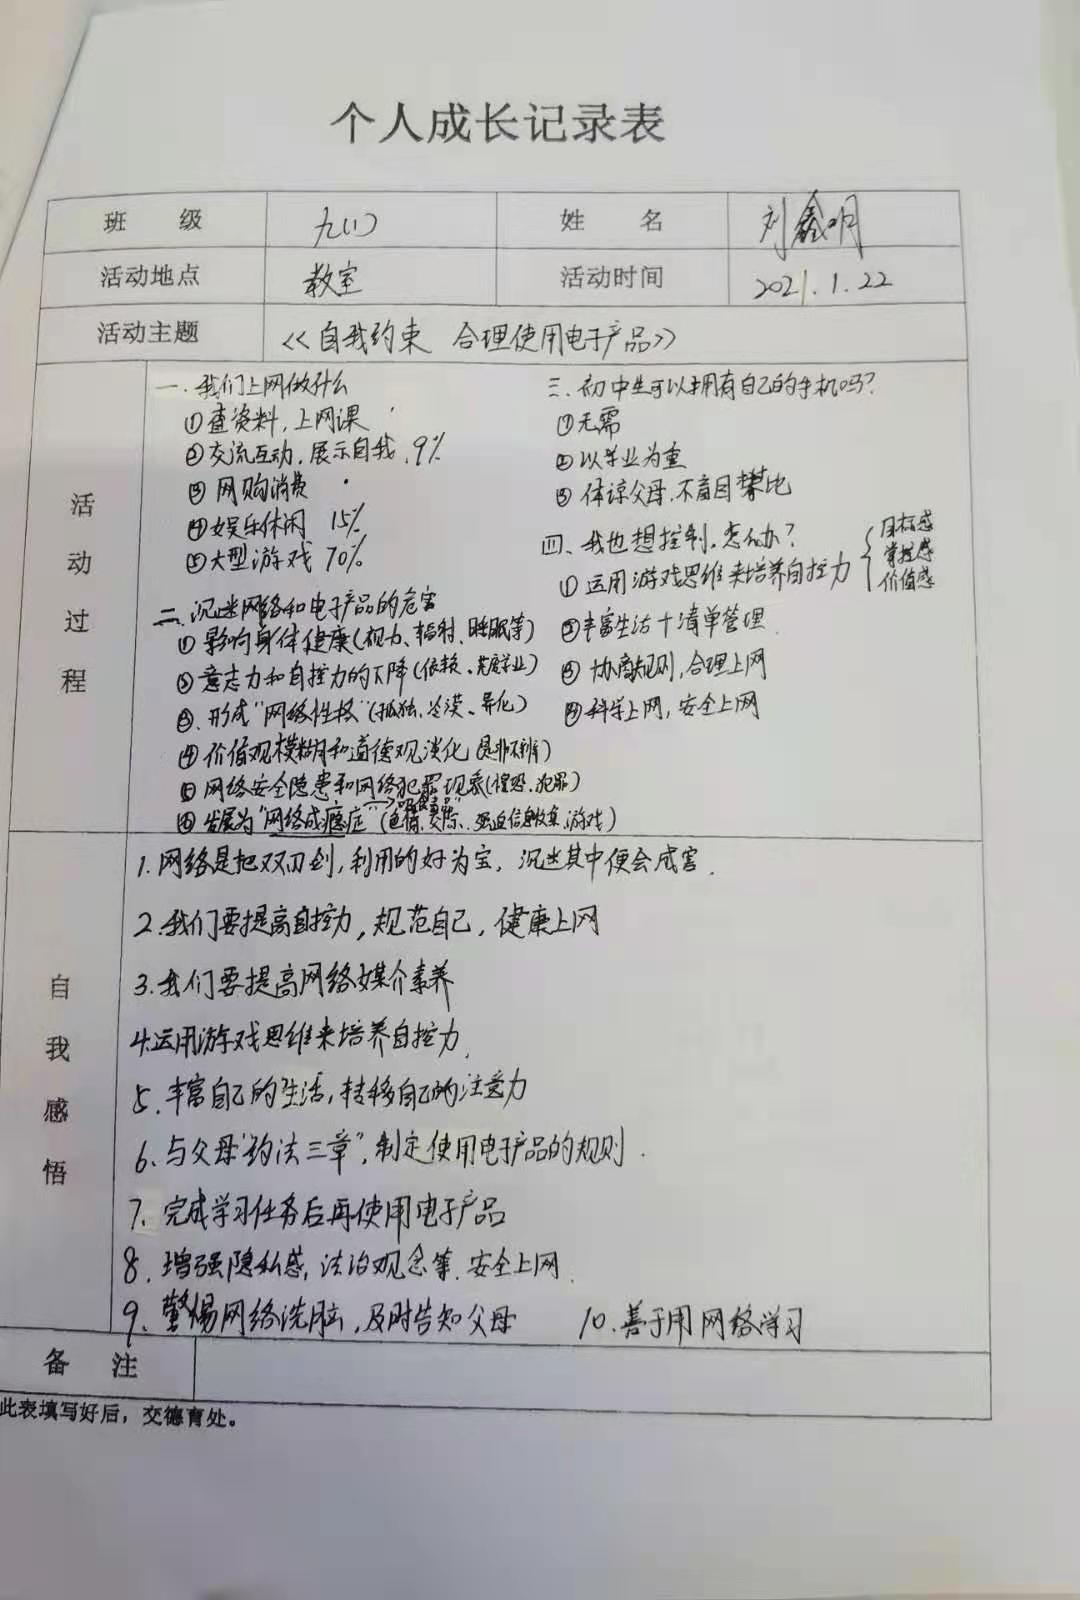 个人成长记录表
班 级 九(1) 姓 名 刘鑫明
活动地点 教室 活动时间 2021.1.22
活动主题 《自我约束 合理使用电子产品》
活动过程
一.我们上网做什么
①查资料,上网课
②交流互动,展示自我.9%
③网购消费
④娱乐休闲 15%
⑤大型游戏 70%
二.沉迷网络和电子产品的危害
①影响身体健康(视力、辐射、睡眠等)
②意志力和自控力的下降(依赖、荒废学业)
③.形成“网络性格”(孤独、冷漠、异化)
④价值观模糊和道德观淡化(是非不辨)
⑤网络安全隐患和网络犯罪现象(犯罪)
⑥发展为“网络成瘾症”(色情、交际、强迫信息收集、游戏)
三.初中生可以拥有自己的手机吗?
①无需
②以学业为重
③体谅父母,不盲目攀比
四、我也想控制,怎么办?
①运用游戏思维来培养自控力 { 目标感 掌控感 价值感
②丰富生活+清单管理
③协商规则,合理上网
④科学上网,安全上网
自我感悟
1.网络是把双刃剑,利用的好为宝,沉迷其中便会成害.
2.我们要提高自控力,规范自己,健康上网
3.我们要提高网络媒介素养
4.运用游戏思维来培养自控力.
5.丰富自己的生活,转移自己的注意力
6、与父母“约法三章”,制定使用电子产品的规则.
7、完成学习任务后再使用电子产品
8.增强隐私感,法治观念等.安全上网.
9、警惕网络洗脑,及时告知父母 10.善于用网络学习
备 注
此表填写好后,交德育处。